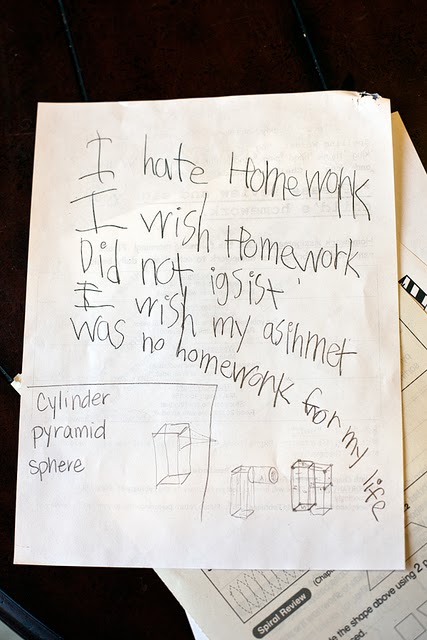 I hate Homework
I wish Homework
Did not igsist
I wish my asihmet
was no homework for my life
Cylinder
pyramid
sphere
Spiral Review
(Chap
de the shape above using 2 p